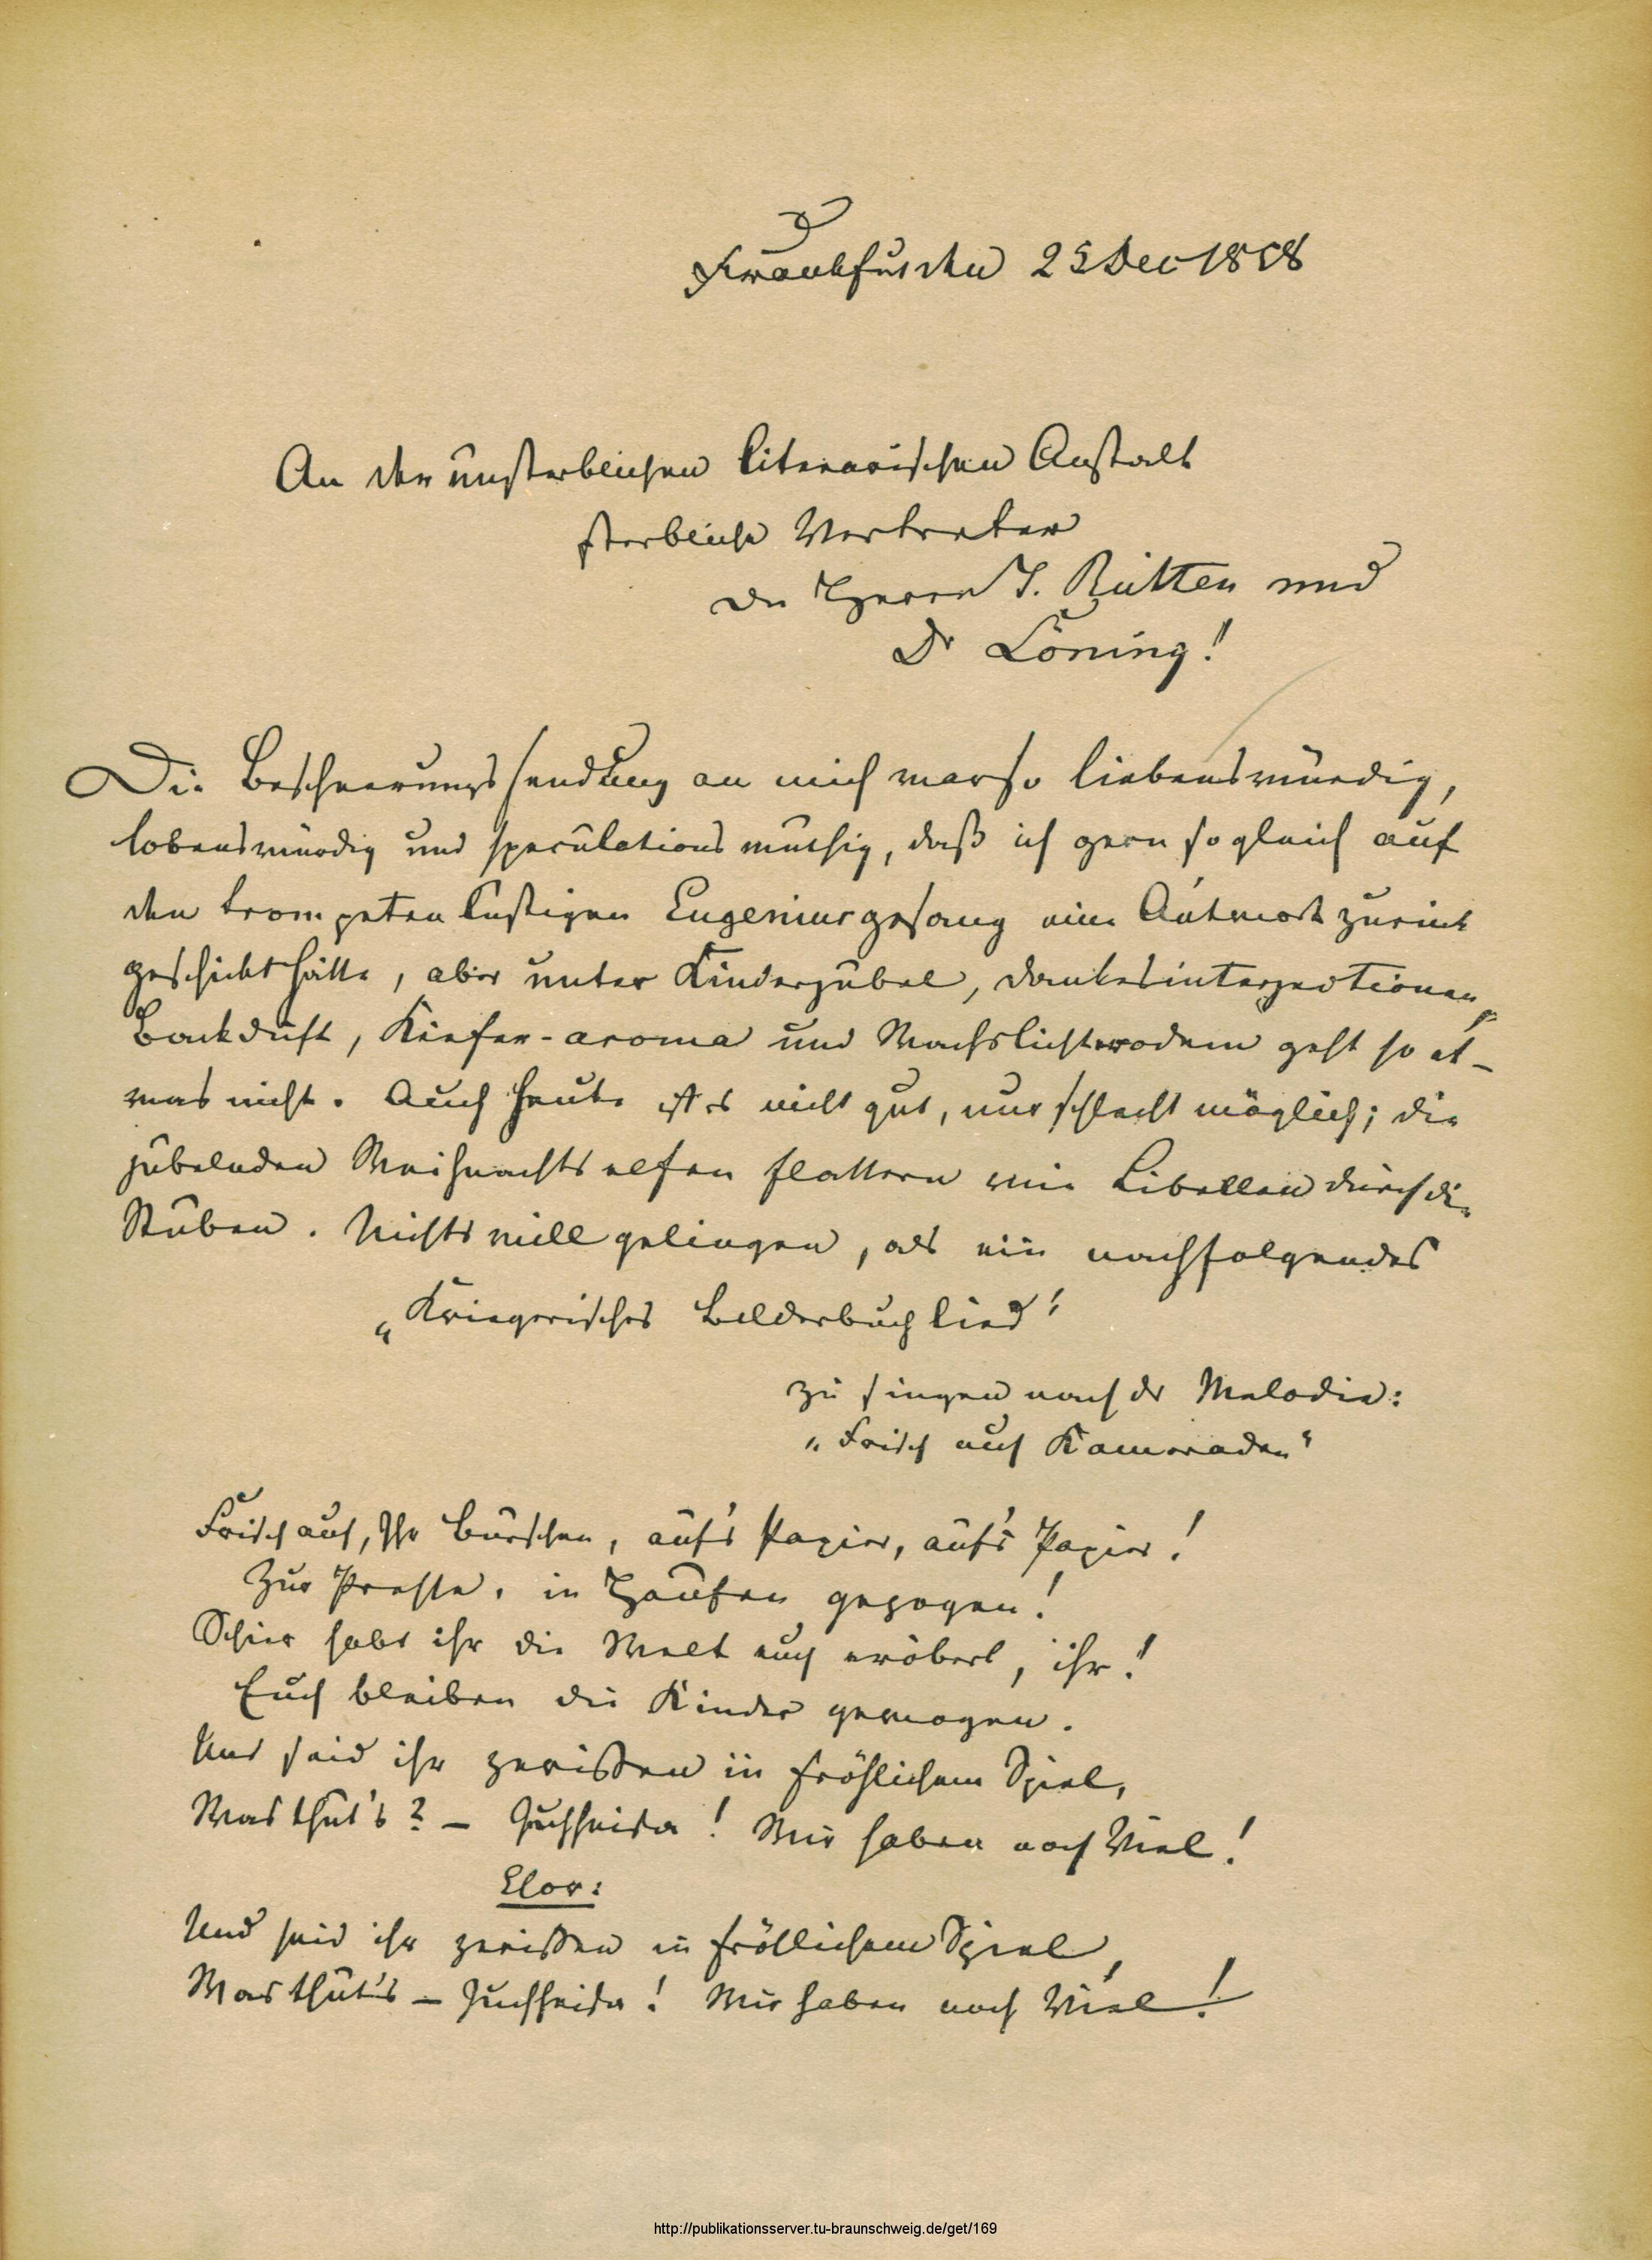 Frankfurt den 25 Dec 1858
An der unsterblichen literarischen Anstalt
sterbliche Vertreter
die Herrn J. Rütten und
Dr Löning!
Die Bescheerungssendung an mich war so liebenswürdig,
lobenswürdig und speculationsmuthig, daß ich gern sogleich auf
den trompetenlustigen Eugeniusgesang eine Antwort zurück
geschickt hätte, aber unter Kinderjubel, Dankesinterjectionen,
Backduft, Kiefer-aroma und Wachslichterodem geht so et-
was nicht. Auch heute ist es nicht gut, nur schlecht möglich; die
jubelnden Weihnachtselfen flattern wie Libellen durch die
Stuben. Nichts will gelingen, als ein nachfolgendes
„Kriegerisches Bilderbuchlied"
zu singen nach der Melodie:
„Frisch auf Kameraden"
Frisch auf, Ihr Burschen, auf's Papier, auf's Papier!
Zur Presse, in Haufen gezogen!
Schier habt ihr die Welt euch erobert, ihr!
Euch bleiben die Kinder gewogen.
Und seid ihr zerissen in fröhlichem Spiel,
Was thut's? – Juchheisa! Wir haben noch Viel!
Chor:
Und seid ihr zerissen in fröhlichem Spiel,
Was thut's – Juchheisa! Wir haben noch Viel!
http://publikationsserver.tu-braunschweig.de/get/169